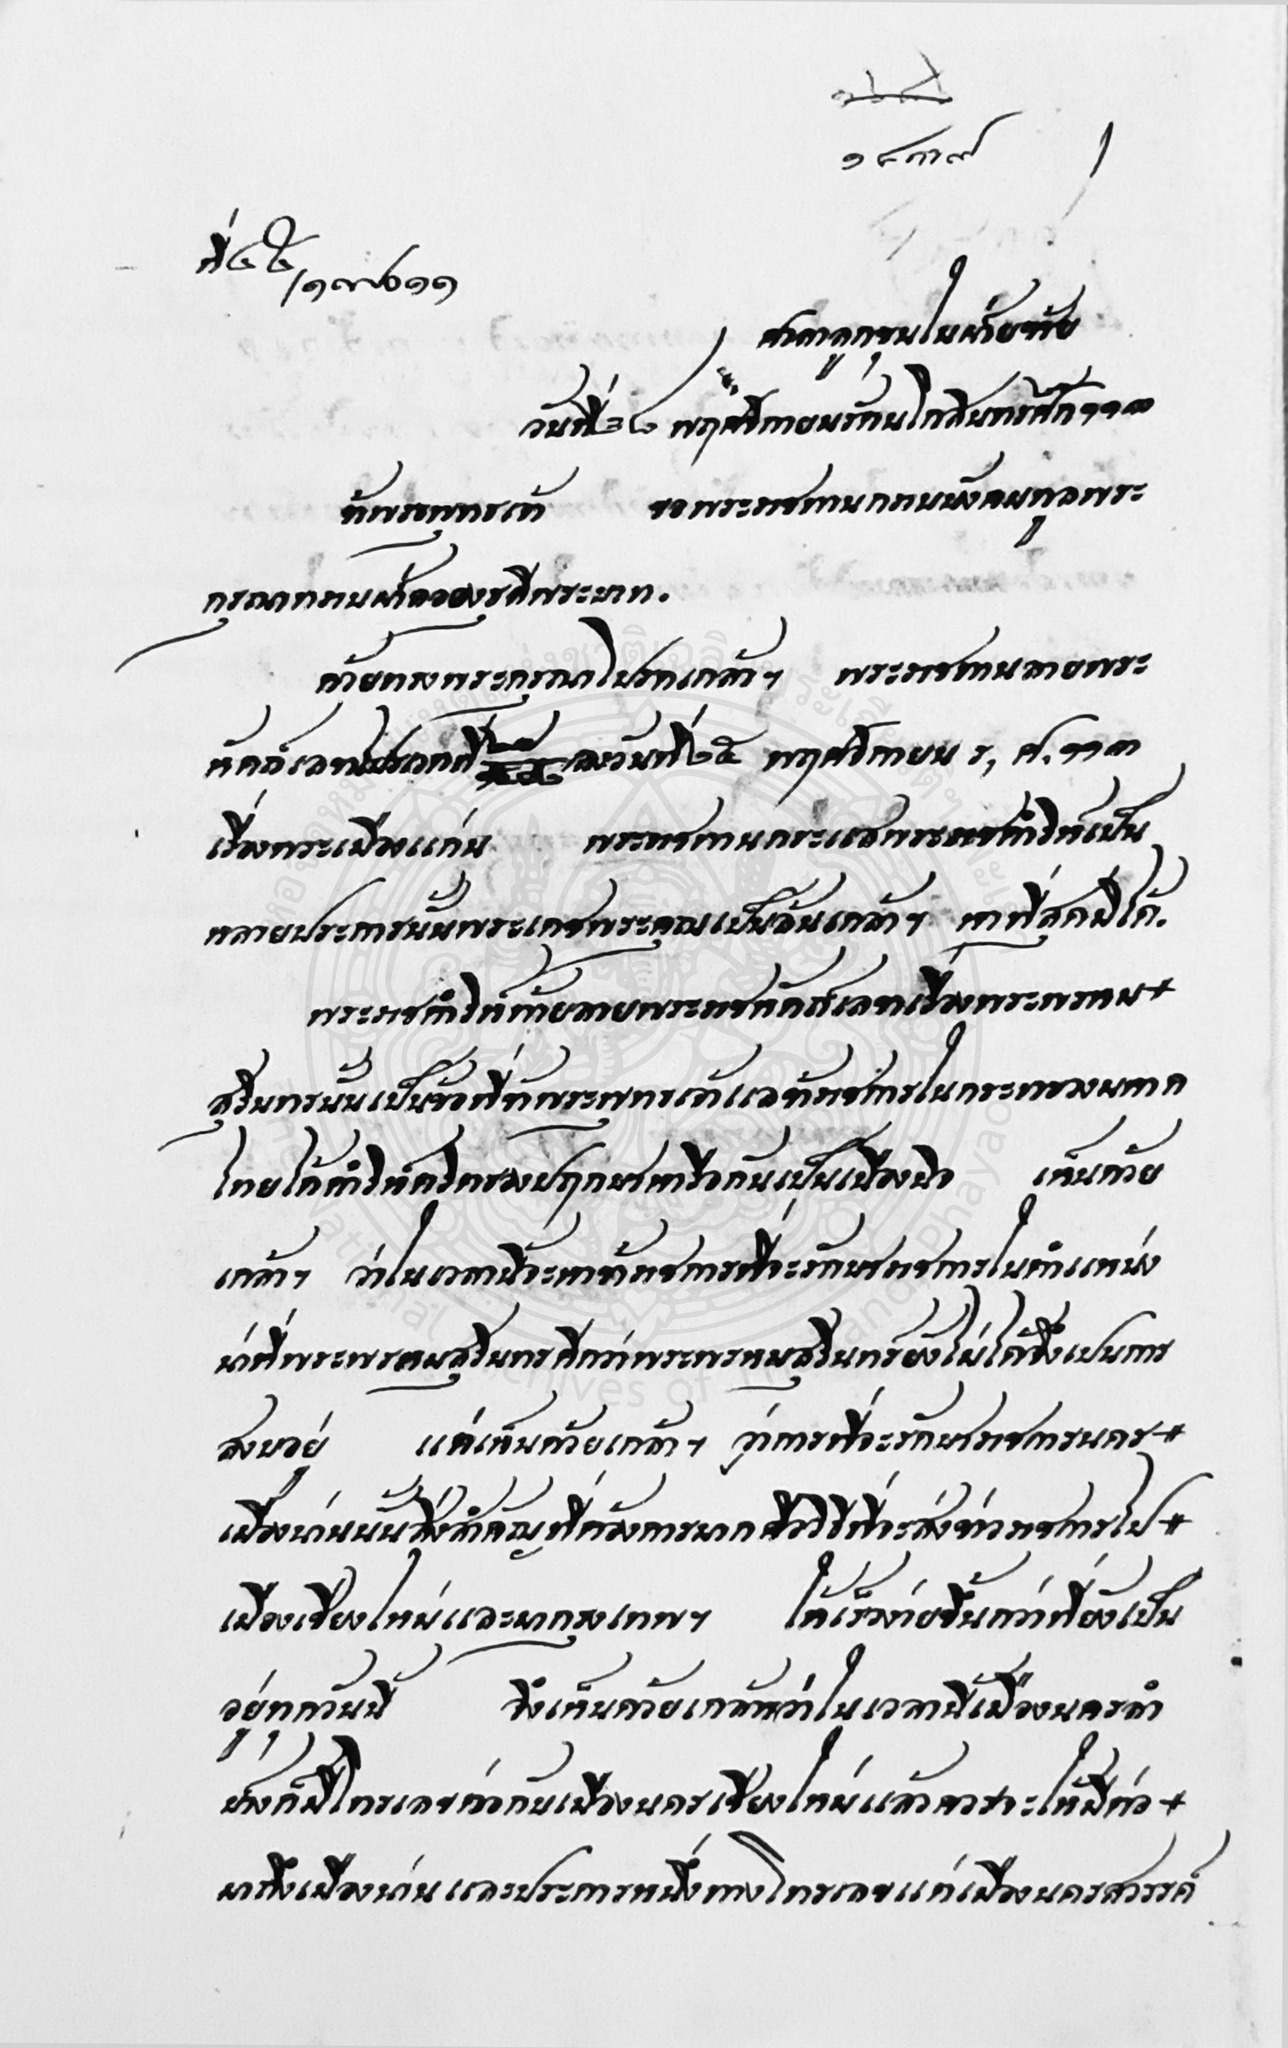 ๑๘๓๙
ที่ ๔๕/๑๙๖๑๑
ศาลาลูกขุนในฝ่ายซ้าย
วันที่ ๒๘ พฤศจิกายนรัตนโกสินทรศก ๑๑๓
ข้าพระพุทธเจ้า ขอพระราชทานกราบบังคมทูลพระ
กรุณาทราบฝ่าลอองธุลีพระบาท.
ด้วยทรงพระกรุณาโปรดเกล้าฯ พระราชทานลายพระ
หัดถ์เลขา ลงวันที่ ๒๕ พฤศจิกายน ร, ศ. ๑๑๓
เรื่องพระเมืองแก่น พระราชทานกระแสพระราชดำริห์เปน
หลายประการนั้นพระเดชพระคุณเปนล้นเกล้าฯ หาที่สุดมิได้.
พระราชดำริห์ด้วยลายพระราชหัดถเลขาเรื่องพระพรหม+
สุรินทรนั้นเปนข้อที่ข้าพระพุทธเจ้าแลข้าราชการในกระทรวงมหาด
ไทยได้ดำริห์ตริตรองปฤกษาหารือกันเปนเนืองนิจ เหนด้วย
เกล้าฯ ว่าในเวลานี้จะหาข้าราชการที่จะรักษาราชการในตำแหน่ง
น่าที่พระพรหมสุรินทรดีกว่าพระพรหมสุรินทร์ยังไม่ได้ซึ่งเปนการ
สงบอยู่ แต่เหนด้วยเกล้าฯ ว่าการที่จะรักษาราชการนคร+
เมืองน่านนั้นสิ่งสำคัญที่ต้องการมากคือวิธีที่จะส่งข่าวราชการไป+
เมืองเชียงใหม่และมากรุงเทพฯ ให้เร็วง่ายขึ้นกว่าที่ยังเปน
อยู่ทุกวันนี้ จึงเหนด้วยเกล้าฯว่าในเวลานี้เมืองนครลำ
ปางก็มีโทรเลขต่อกับเมืองนครเชียงใหม่แล้วควรจะให้มีต่อ+
มาถึงเมืองน่าน และประการหนึ่งทางโทรเลขแต่เมืองนครสวรรค์